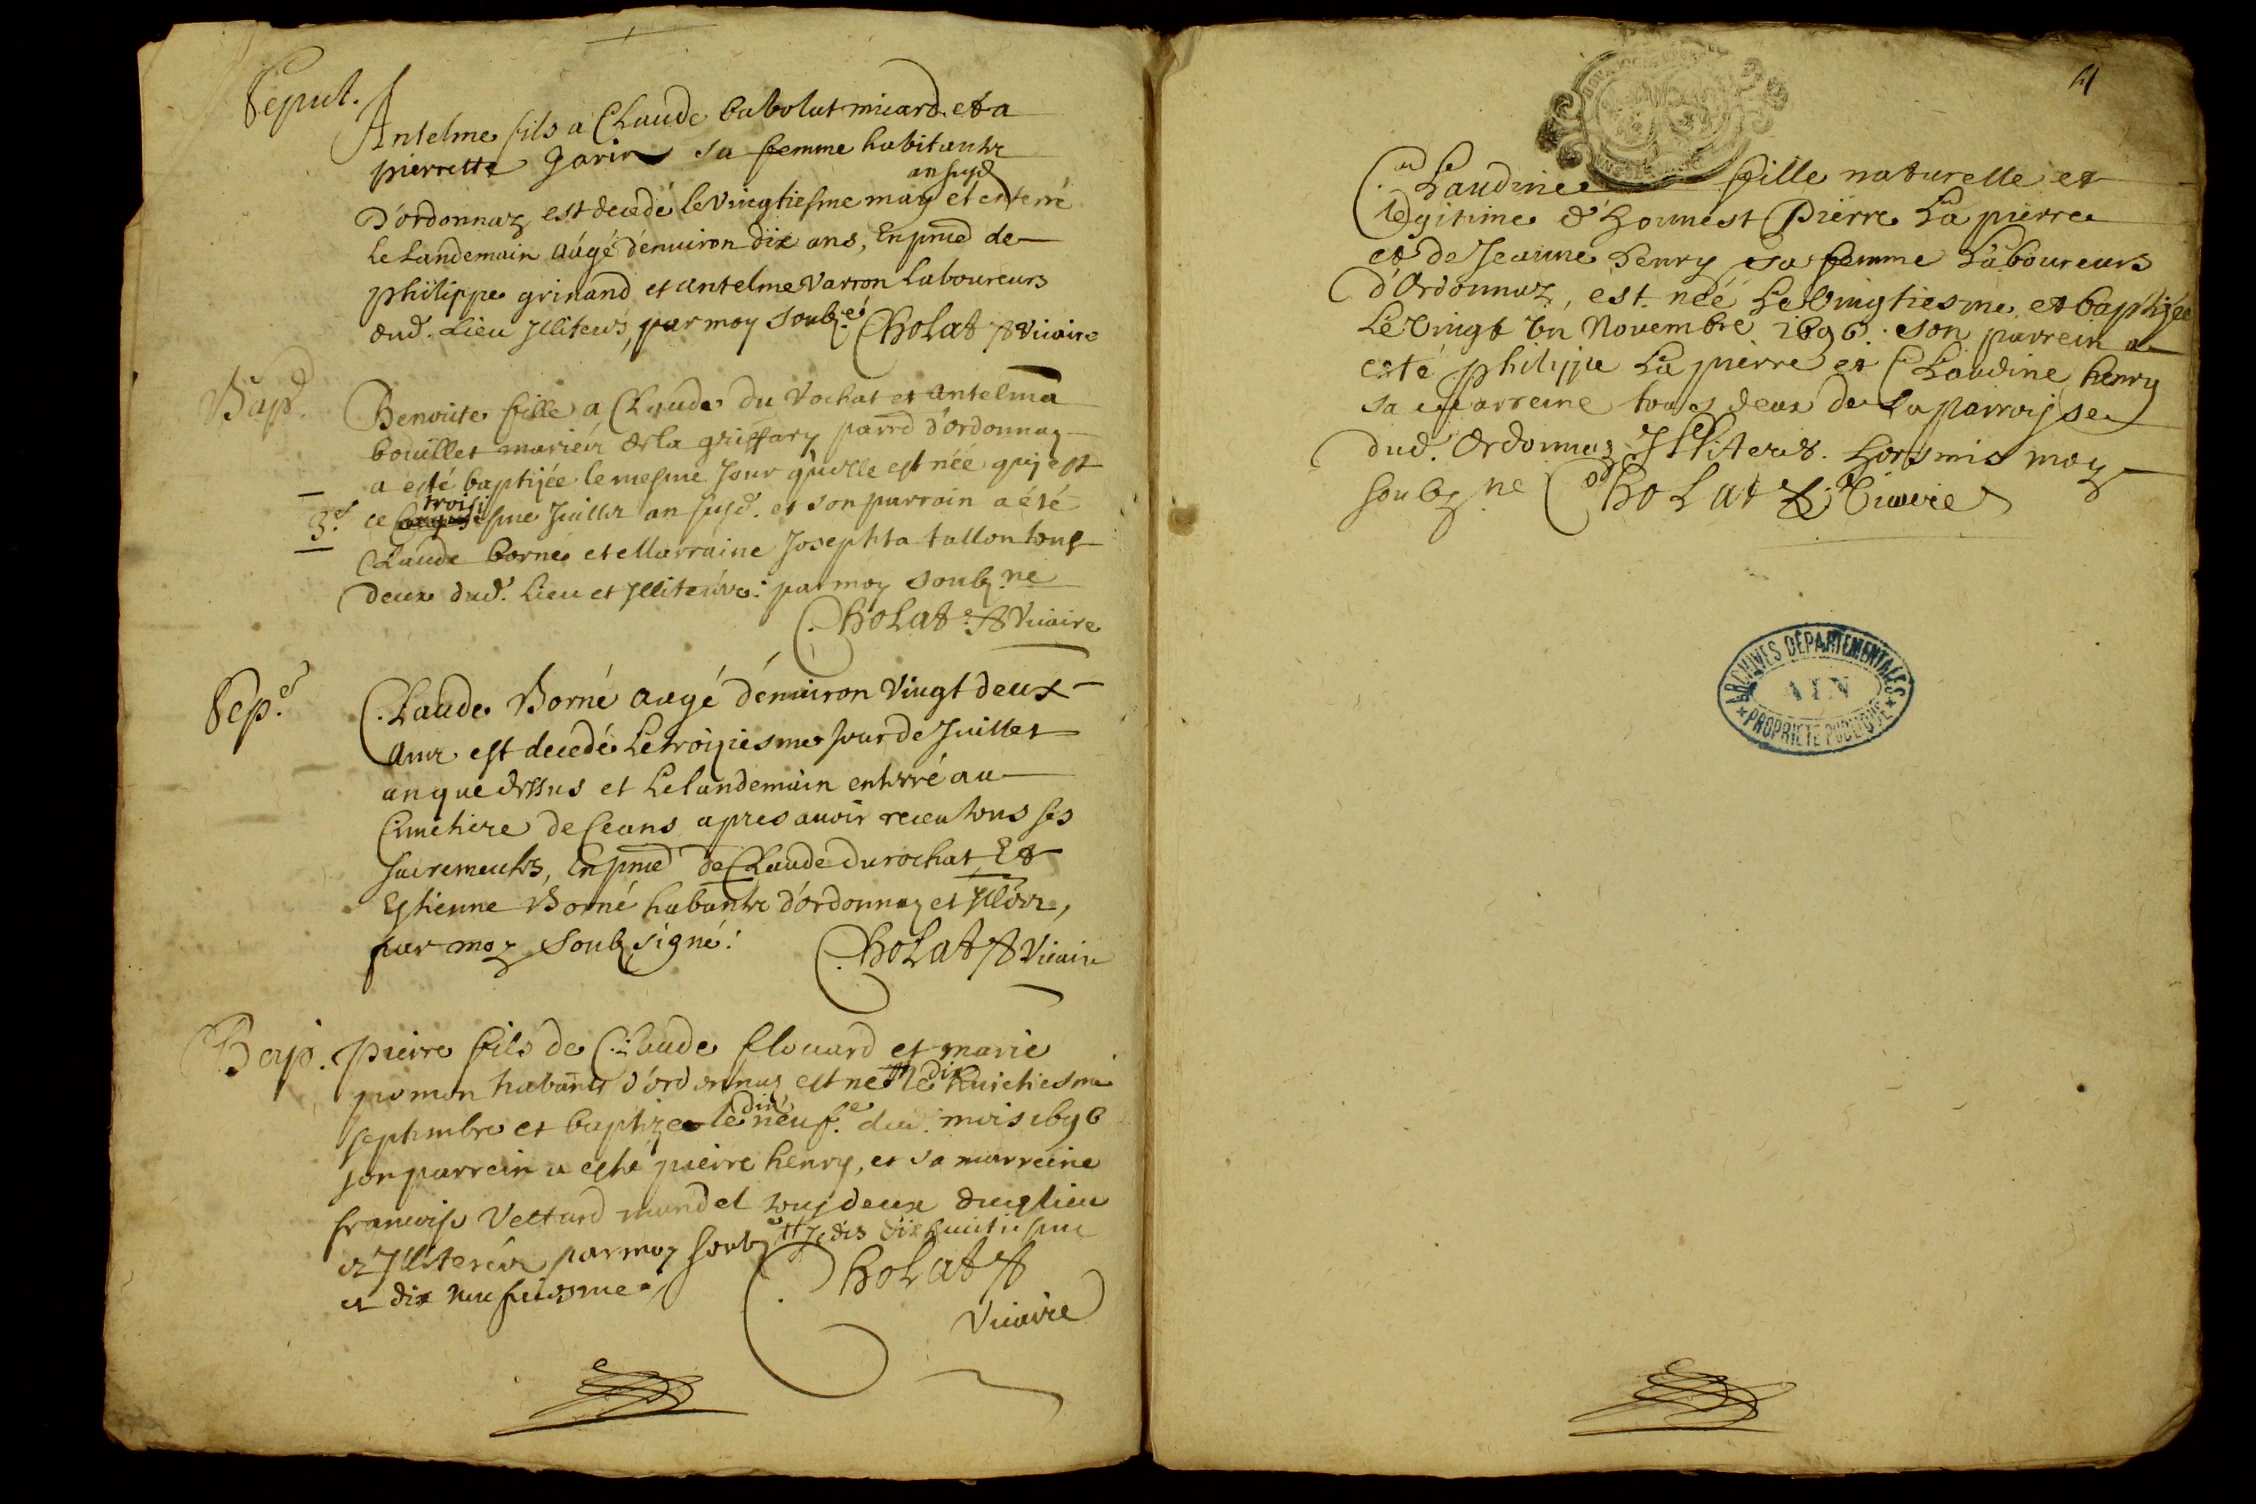 Seput.
Antelme fils a Claude babolat micard et a
pierrette Gavin sa femme habitants
an susd
D'ordonnaz est decedé le vingtiesme may et enterré
le landemain aâgé d'enuiron dix ans, En pñce de
philippe grinand et antelme varron Laboureurs
dud. Lieu Jlliterés, par moy soubz.é Cholat Vicaire
Bap.
Benoite fille a Claude du Rochat et antelma
bouillet mariés de la griffary parr d'ordonnaz
a esté baptizée le mesme Jour qu'elle est née qui est
troisi
3.e ce esme Juillet an susd. et son parrain a été
Claude borné et Marraine Josephta tallon tous
deux dud. Lieu et Jlliterés. par moy soubz.né
Cholat Vicaire
Sep.e
Claude Borné aagé d'enuiron Vingt deux
ans est decedé Le troiziesme Jour de Juillet
an que dessus et Le landemain enterré au
Cimetiere de Ceans apres auoir receu tous ses
sacrements, En pñce de Claude du rochat Et
Estienne Borné habants d'ordonnaz et Jlleres,
par moy Soubzsigné. Cholat Vicaire
Bap. Pierre fils de Claude flouard et marie
dix
pomon habants d'ordonnaz est né le huictiesme
dix
septembre et baptizé le neuf.e dud. mois 1696
son parrein a esté pierre henry, et sa marreine
francoise Vettard mandet tous deux dud lieu
et Jlliterés par moy soubz.e Je dis dix huictiesme
et dix neufuiesme. Cholat
Vicaire
4
Claudine fille naturelle et
legitime d'Honnest Pierre La pierre
et de Jeanne henry sa femme Laboureurs
d'Ordonnaz, est née Le Vingtiesme et baptizée
Le Vingt Un Novembre 1696. son parrein a
esté philippe La pierre et Claudine henry
sa marreine tous deux de La parroisse
dud. Ordonnaz Jlliterés. horsmis moy
soubz.né Cholat Vicaire
ARCHIVES DÉPARTEMENTALES
AIN
PROPRIÉTÉ PUBLIQUE